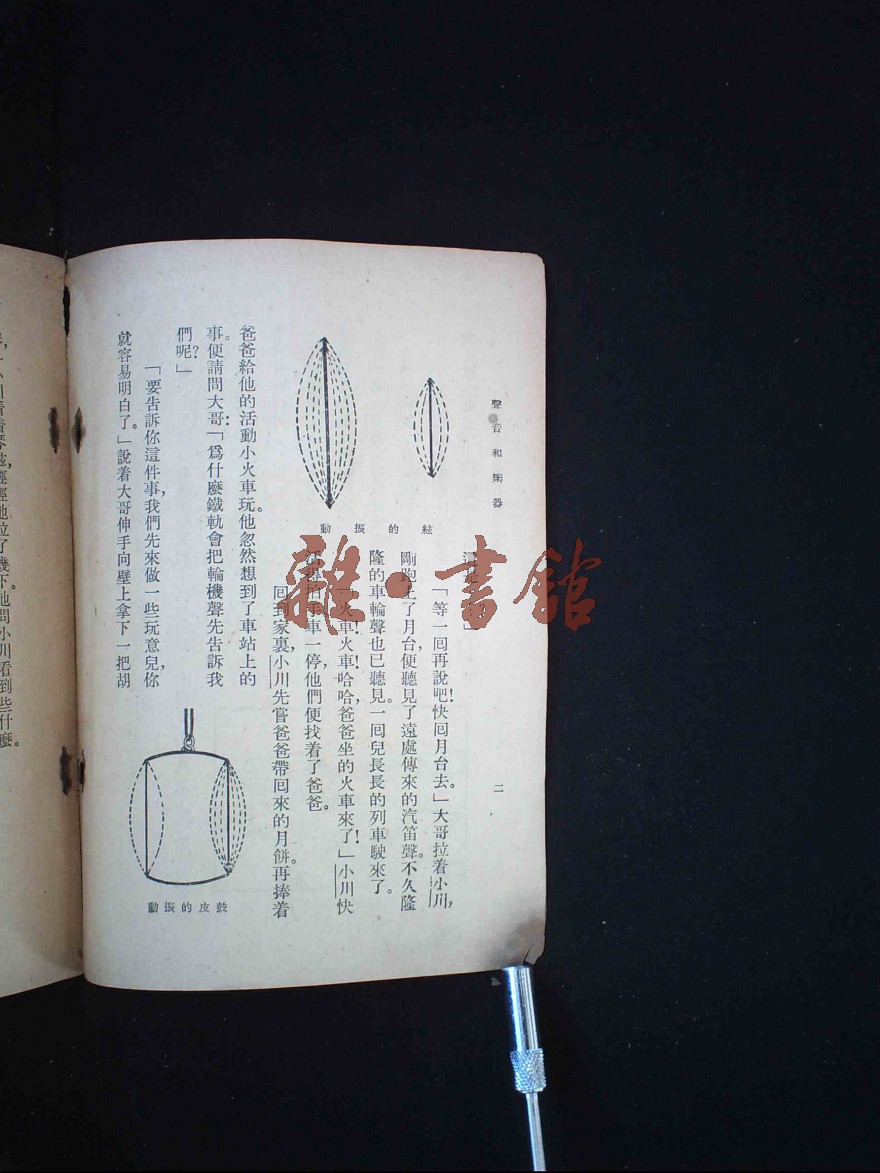 聲音和樂器
二
「等一回再說吧!快回月台去。」大哥拉着小川,
剛跑上了月台,便聽見了遠處傳來的汽笛聲。不久隆
隆的車輪聲也已聽見。一回兒長長的列車駛來了。
「火車!火車!哈哈,爸爸坐的火車來了!」小川快
活得拍手。車一停,他們便找着了爸爸。
回到家裏,小川先嘗爸爸帶回來的月餅。再捧着
爸爸給他的活動小火車玩。他忽然想到了車站上的
事。便請問大哥:「爲什麼鐵軌會把輪機聲先告訴我
們呢?」
「要告訴你這件事,我們先來做一些玩意兒,你
就容易明白了。」說着大哥伸手向壁上拿下一把胡
絃的振動
鼓皮的振動
輕輕地拉了幾下。他問小川看到些什麼。
雜·書館